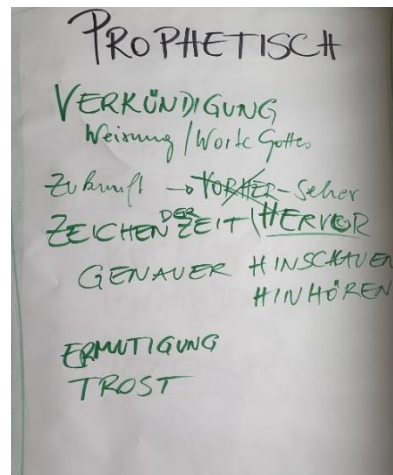 PROPHETISCH
VERKÜNDIGUNG
Weisung / Worte Gottes
Zukunft → VORHER-Seher
ZEICHEN DER ZEIT | HERVOR
GENAUER HINSCHAUEN
HINHÖREN
ERMUTIGUNG
TROST